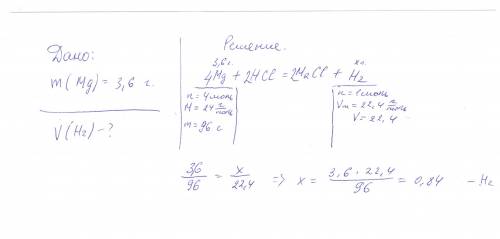 Дано:
m(Mg) = 3,6 г.
V(H₂) - ?
Решение.
3,6 г. x л.
4Mg + 2HCl = 2MgCl + H₂
n = 4 моль
M = 24 г/моль
m = 96 г
n = 1 моль
Vm = 22,4 л/моль
V = 22,4
3,6/96 = x/22,4 => x = 3,6 · 22,4/96 = 0,84 - H₂